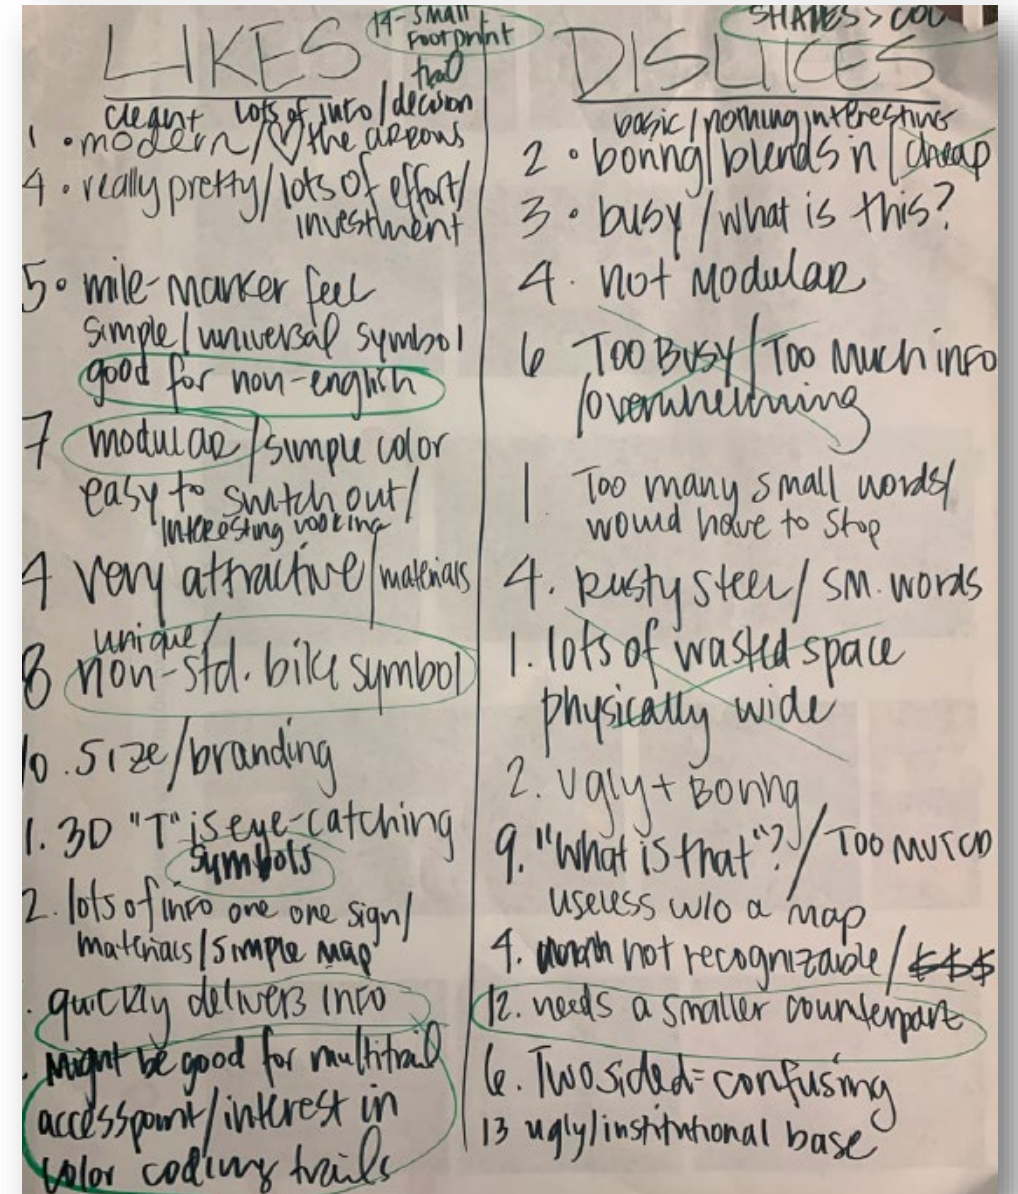 LIKES
14- Small
Footprint
trail
clean + lots of info/decision
1 • modern/♡ the arrows
4 • really pretty/lots of effort/
investment
5 • mile-marker feel
simple/universal symbol
good for non-english
7 modular/simple color
easy to switch out/
interesting looking
4 very attractive/materials
unique/
8 non-std. bike symbol
10. size/branding
1. 3D "T" is eye-catching
symbols
2. lots of info one one sign/
materials/simple map
. quickly delivers info
. Might be good for multitrail
accesspoint/interest in
color coding trails
SHAPES >
DISLIKES
basic/nothing interesting
2 • boring/blends in/cheap
3 • busy/what is this?
4. not modular
6 Too Busy/Too Much info
/overwhelming
1 Too many small words/
would have to stop
4. rusty steel/sm. words
1. lots of wasted space
physically wide
2. Ugly + Boring
9. "What is that"?/Too MUTCD
useless w/o a map
4. not recognizable/$$$
12. needs a smaller counterpart
6. Two sided = confusing
13 ugly/institutional base